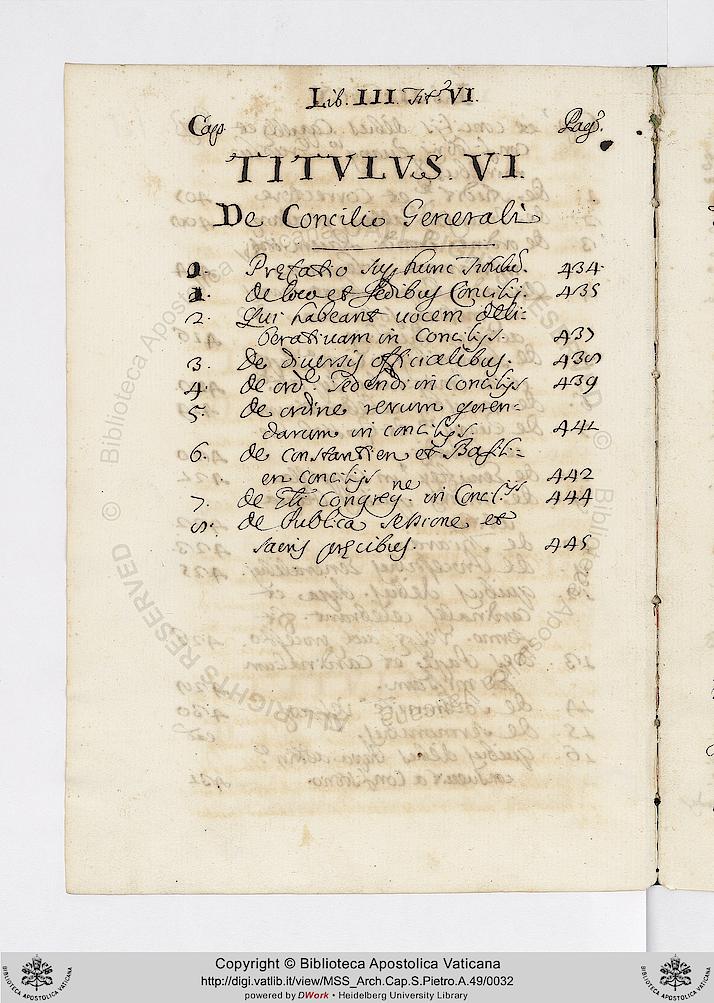 Lib. III Titº VI.
Cap. Pagª.
TITVLVS. VI.
De Concilio Generali
0. Prefatio sup. hunc 434
1. de loco et sedibus Concilij. 435
2. Qui habeant vocem deli-
berativam in Concilijs. 437
3. De diversis officialibus. 438
4. de ord.e sedendi in Concilijs 439
5. de ordine rerum geren-
darum in concilijs. 441
6. de constantien et Basili-
en concilijs 442
7. de Congreg.ne in Concijs 444
8. de Publica sessione et
sacris precibus. 445
Copyright © Biblioteca Apostolica Vaticana
http://digi.vatlib.it/view/MSS_Arch.Cap.S.Pietro.A.49/0032
powered by DWork • Heidelberg University Library